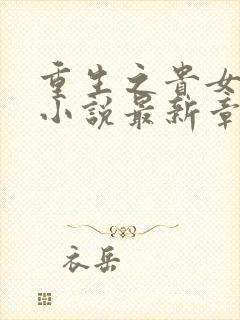 重生之貴女
小說最新章
衣岳